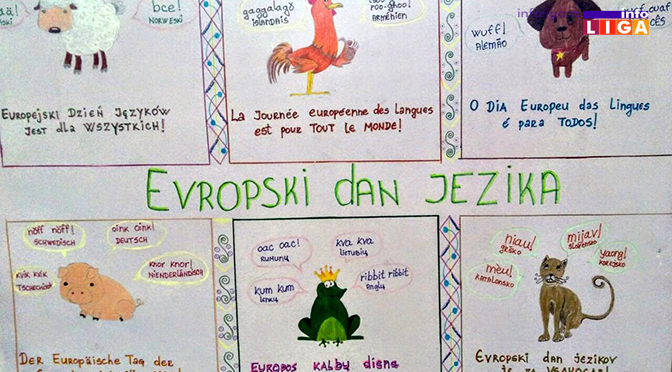 bce!
NORWESKI
gaggalagó
ISLANDAIS
ARMÉNIEN
wuff!
ALEMÃO
info
LIGA
EUROPEJSKI DZIEŃ JĘZYKÓW
JEST dla WSZYSTKICH!
La JOURNÉE EUROPÉENNE des LANGUES
EST POUR TOUT LE MONDE!
O DIA EUROPEU das LINGUES
é PARA TODOS!
EVROPSKI dan JEZIKA
nöff nöff!
SCHWEDISCH
oink oink!
DEUTSCH
kvik kvik
TSCHECHISCH
knor knor!
NIENDERLÄNDISCH
DER EUROPÄISCHE TAG der
oac oac!
RUMUNŲ
kva kva
kum kum
ribbit ribbit
ANGLŲ
EUROPOS KALBŲ diena
niau!
mijav!
SLOVENSKO
mèu!
KATALONSKO
yaong!
KOREJSKO
EVROPSKI dan JEZIKOV